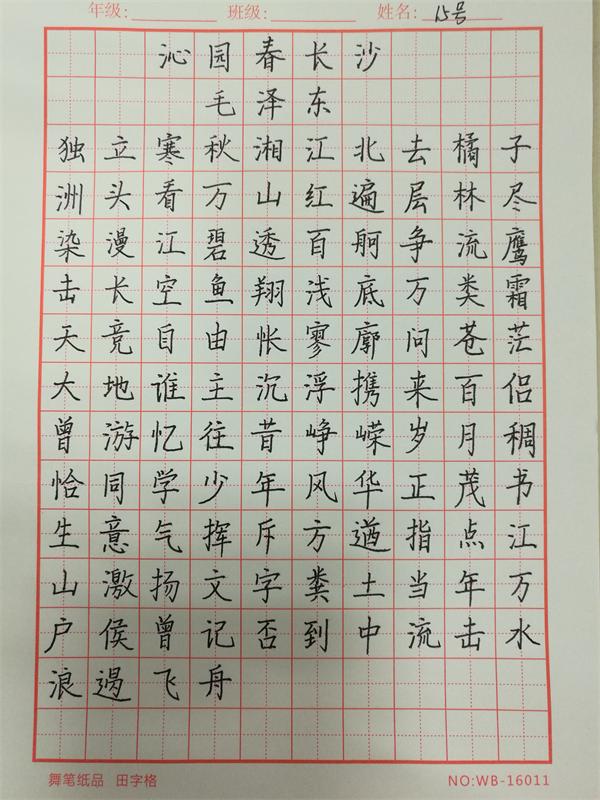 年级: 班级: 姓名: 15号
沁园春长沙
毛泽东
独立寒秋湘江北去橘子
洲头看万山红遍层林尽
染漫江碧透百舸争流鹰
击长空鱼翔浅底万类霜
天竞自由怅寥廓问苍茫
大地谁主沉浮携来百侣
曾游忆往昔峥嵘岁月稠
恰同学少年风华正茂书
生意气挥斥方遒指点江
山激扬文字粪土当年万
户侯曾记否到中流击水
浪遏飞舟
舞笔纸品 田字格 NO:WB-16011